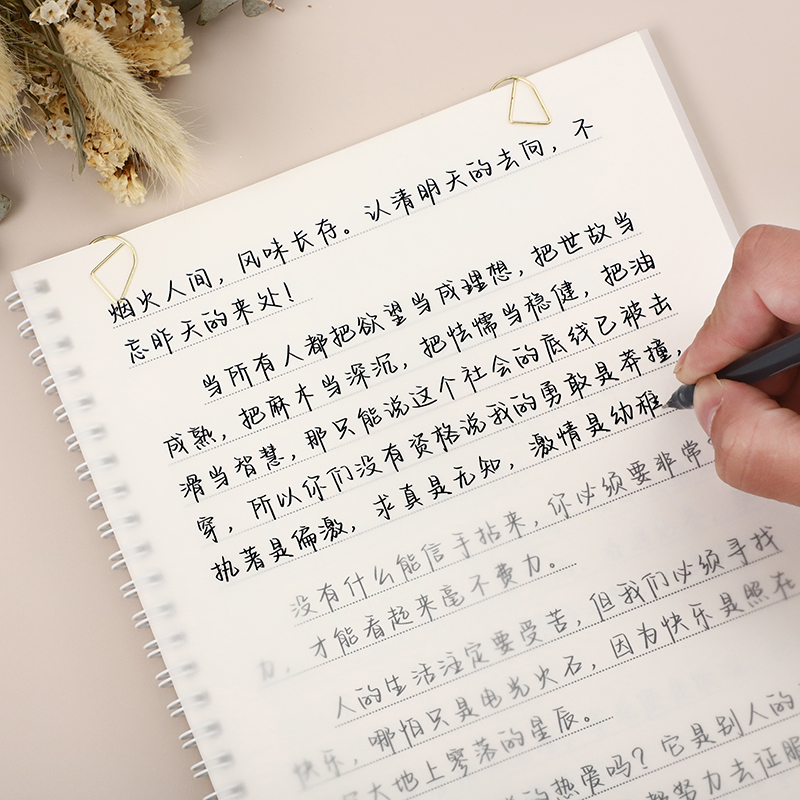 烟火人间，风味长存。认清明天的去向，不
忘昨天的来处！
当所有人都把欲望当成理想，把世故当
成熟，把麻木当深沉，把怯懦当稳健，把油
滑当智慧，那只能说这个社会的底线已被击
穿，所以你们没有资格说我的勇敢是莽撞，
执著是偏激，求真是无知，激情是幼稚
没有什么能信手拈来，你必须要非常
力，才能看起来毫不费力。
人的生活注定要受苦，但我们必须寻找
快乐，哪怕只是电光火石，因为快乐是照在
大地上寥落的星辰。
的热爱吗？它是别人的
努力去征服